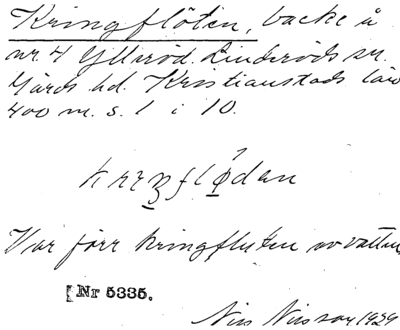 Kringflöten, backe å
nr 4 Yllnöd. Linderöds sn.
Gärds hd. Kristianstads län
400 m. s. l i 10.
krıꞑflödan
Var förr kringfluten av vatten
[Nr 5335.
Nils Nilsson 1929